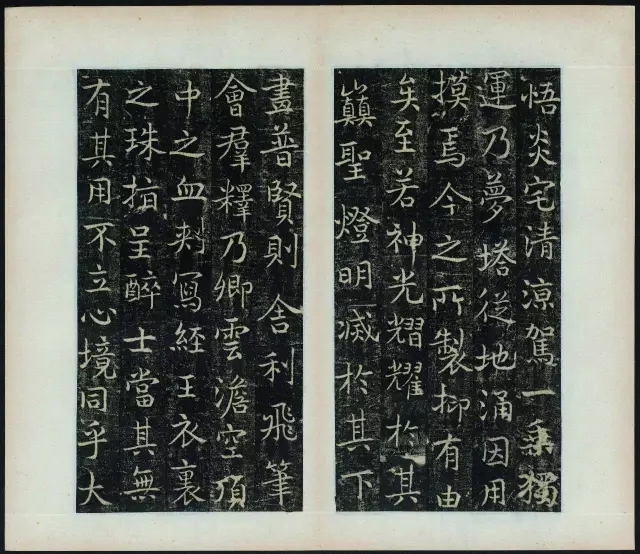 悟炎宅清涼駕一乘獨
運乃夢塔從地涌因用
摸焉今之所製抑有由
矣至若神光熠耀於其
巔聖燈明滅於其下
畫普賢則舍利飛筆
會羣釋乃卿雲澹空頂
中之血刾寫經王衣裏
之珠指呈醉士當其無
有其用不立心境同乎大